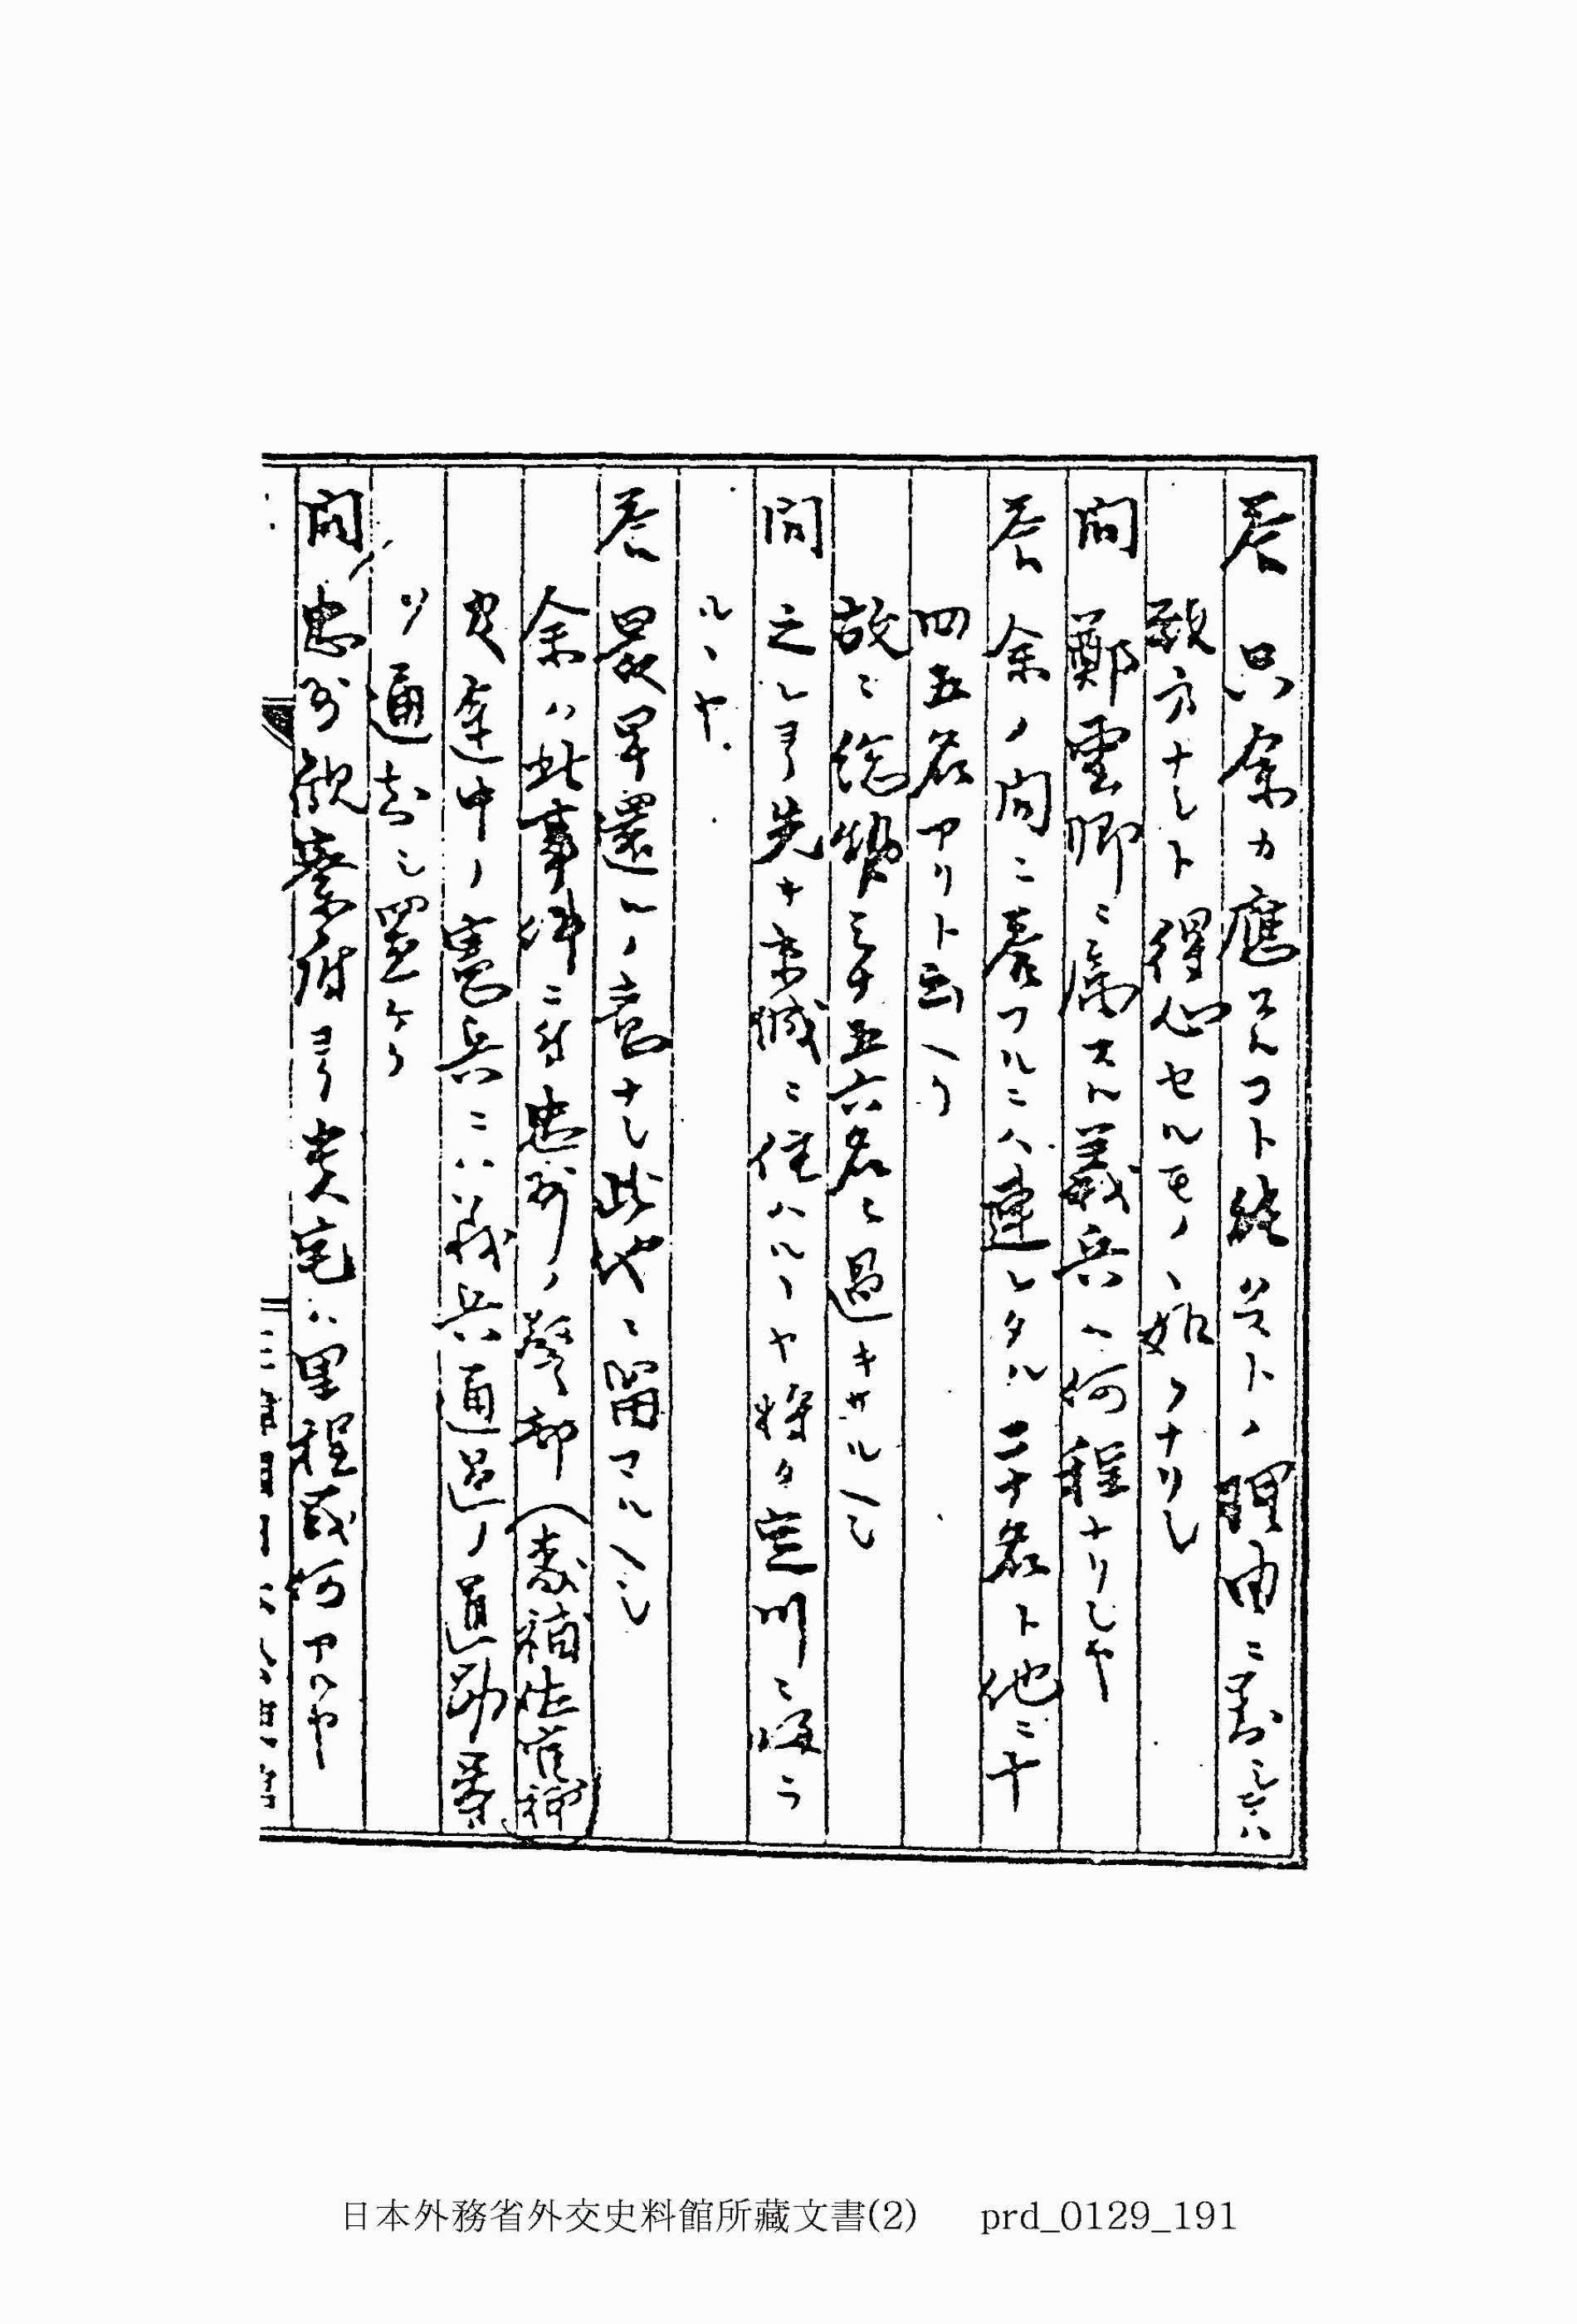 答 只余カ應スルコト能ハストノ理由ニ対シテハ
致方ナシト得心セルモノヽ如クナリシ
問 鄭雲卿ニ属スル義兵ハ何程ナリシヤ
答 余ノ問ニ答フルニハ連レタル二十名ト他ニ十
四五名アリト云ヘリ
故ニ総勢三十五六名ニ過キサルヘシ
問 之レヨリ先キ京城ニ住ハルヽヤ将タ堤川ニ返ラ
ルヽヤ
答 最早還ルノ意ナシ此地ニ留マルヘシ
余ハ此事件ニ付忠州ノ警部(兼補佐官補)
及達中ノ憲兵ニハ義兵通過ノ道路等
ヲ通知シ置ケリ
問 忠州観察府ヨリ貴宅ハ里程幾何アルヤ
日本外務省外交史料館所藏文書(2) prd_0129_191